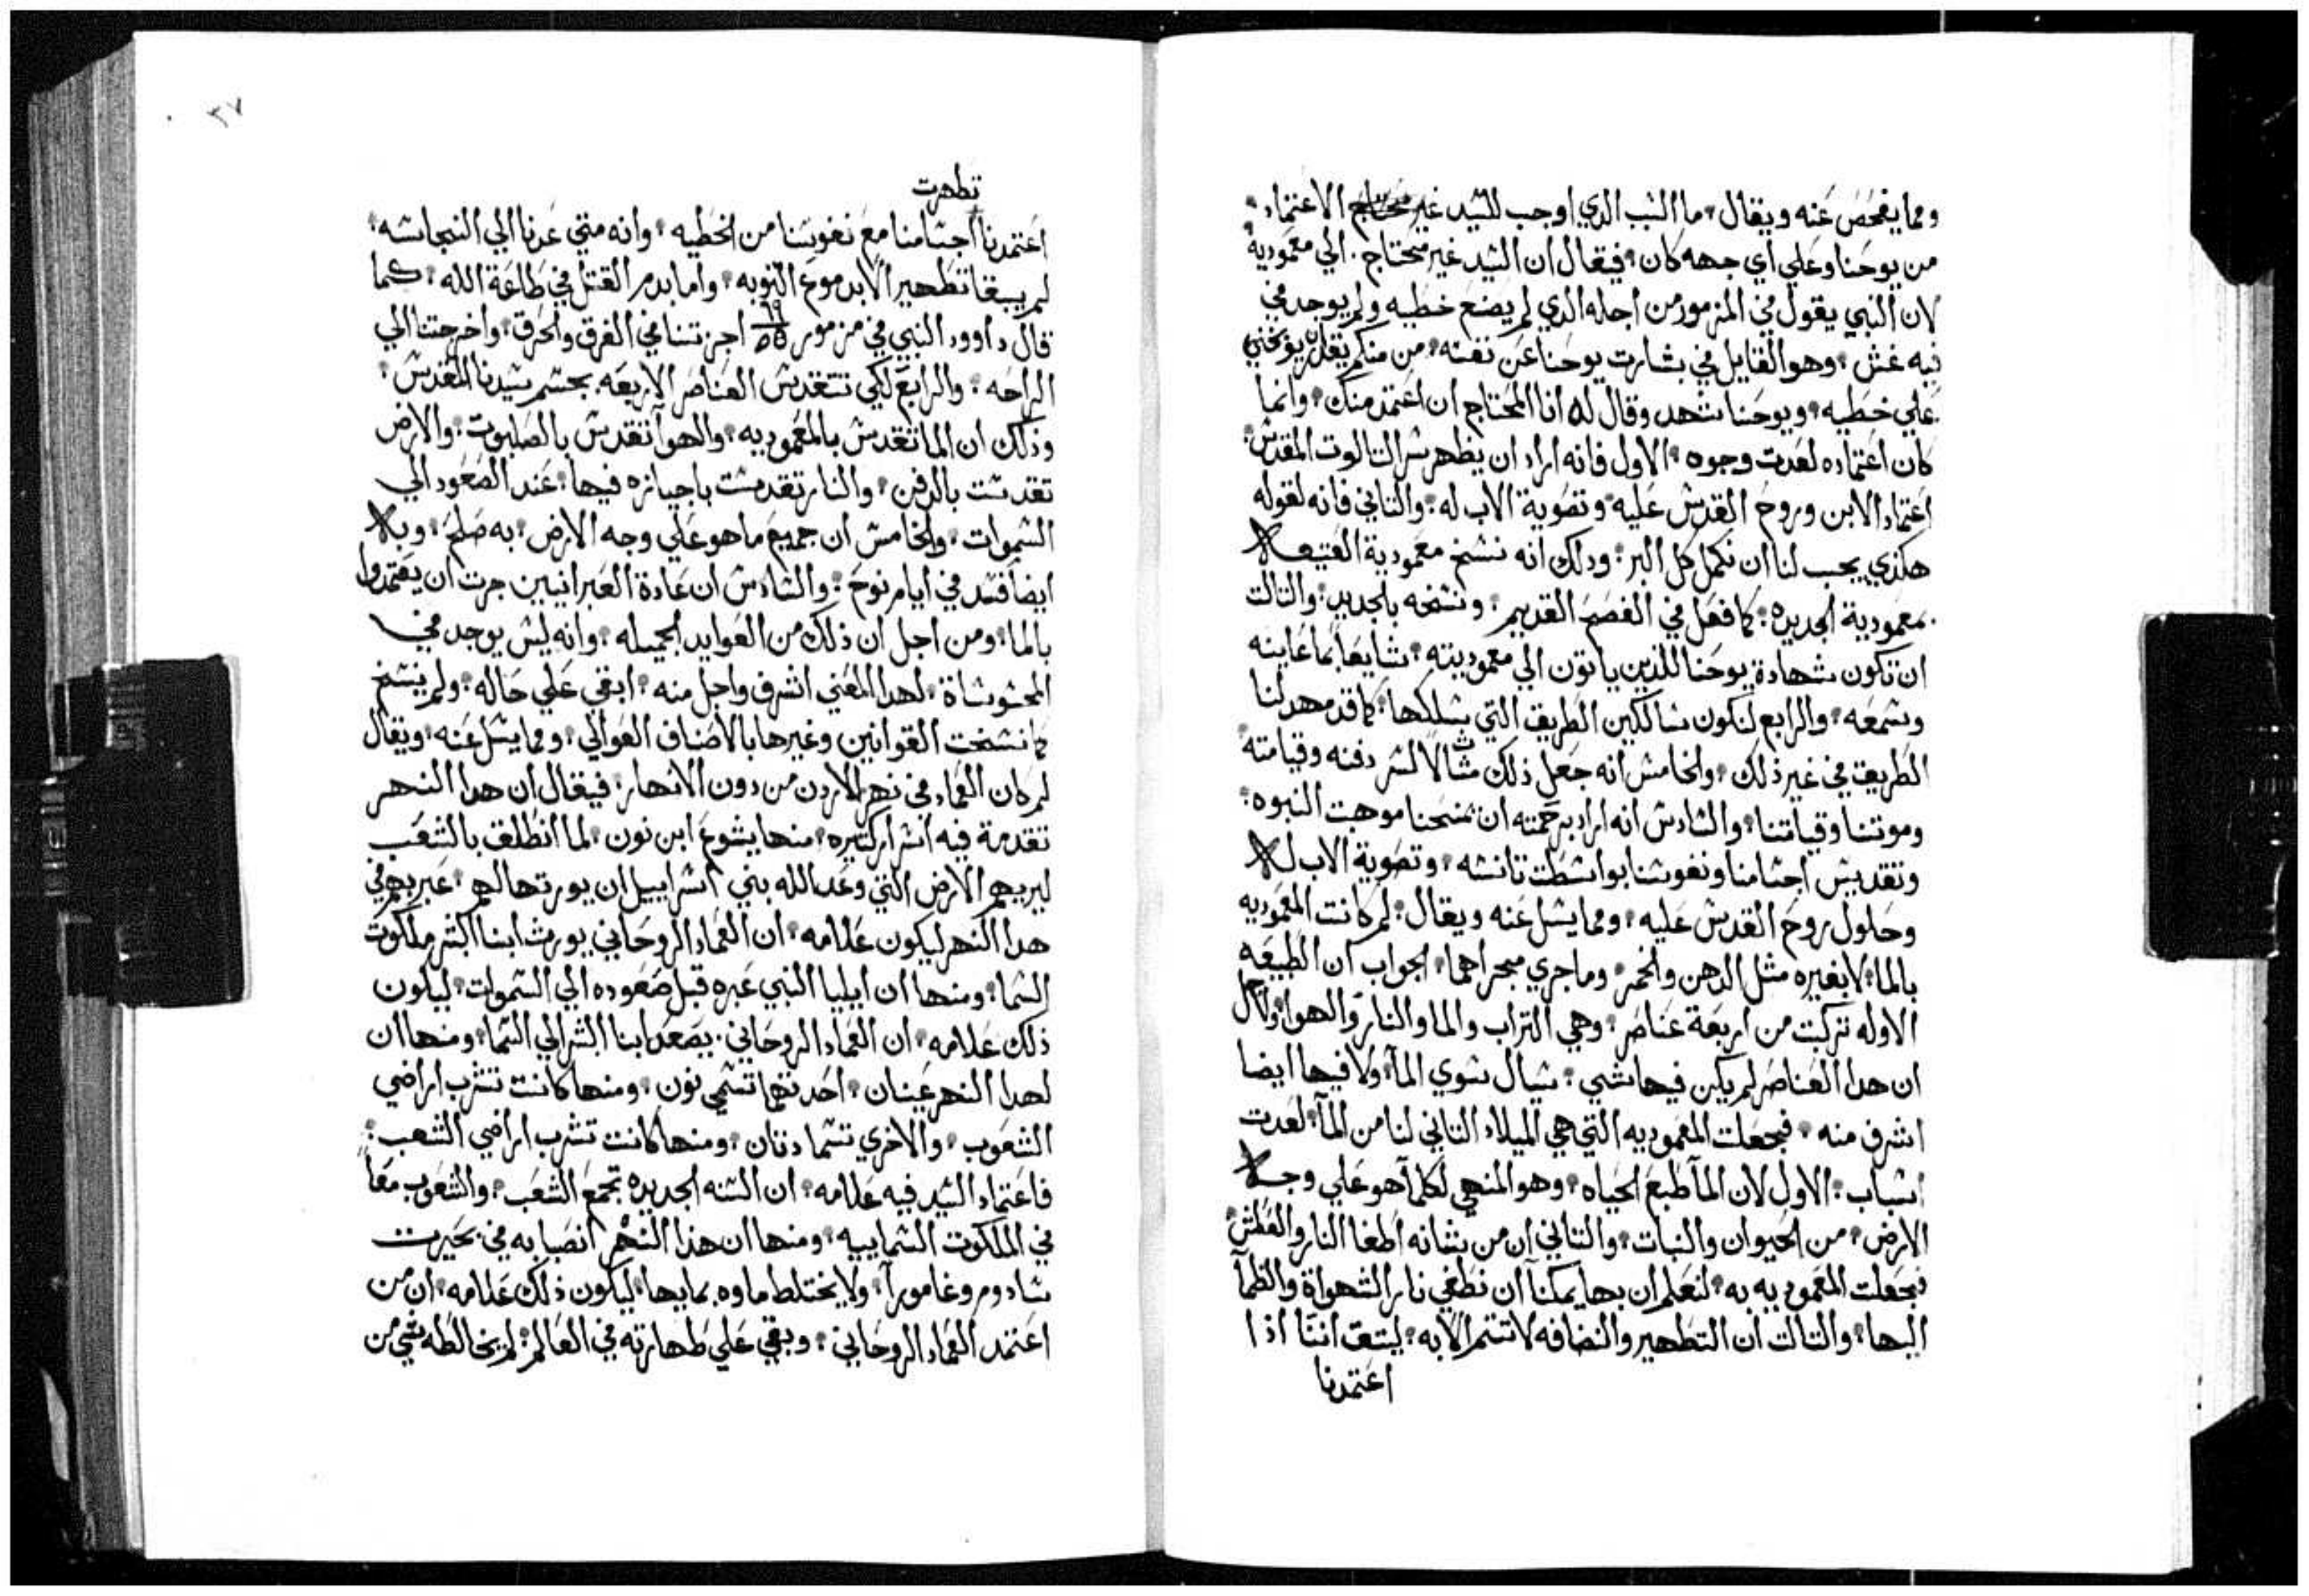 ومما يفحص عنه ويقال ما السبب الدي اوجب للسيد غير محتاج الاعتماد
من يوحنا وعلي اي جهه كان فيقال ان السيد غير محتاج الي معمودية
لان النبي يقول في المزمور من اجله الدي لم يصنع خطيه ولم يوجد في
فيه غش وهو القايل في بشارت يوحنا عن نفسه من منكم يقدر يوبخني
علي خطيه ويوحنا شهد وقال له انا المحتاج ان اعتمد منك وانما
كان اعتماده لعدت وجوه الاول فانه اراد ان يظهر سر التالوت المقدس
اعتماد الابن وروح القدس عليه وتصوية الاب له والتاني فانه لقوله
هكذي يجب لنا ان نكمل كل البر ودلك انه نسخ معمودية العتيقه
بمعمودية الجديده كما فعل في الفصح القديم ونسخه بالجديد والتالت
ان تكون شهادة يوحنا للدين ياتون الي معموديته شايعا بما عاينه
وسمعه والرابع لنكون سالكين الطريق التي يسلكها كما قد مهد لنا
الطريق في غير ذلك والخامس انه جعل ذلك مثالا لسر دفنه وقيامته
وموتنا وقيامتنا والسادس انه اراد برحمته ان يمنحنا موهبت النبوه
وتقديس اجسامنا ونفوسنا بواسطت تانسه وتصوية الاب له
وحلول روح القدس عليه ومما يسل عنه ويقال لم كانت المعموديه
بالما لا بغيره مثل الدهن والخمر وما جري مجراهما الجواب ان الطبيعه
الاوله تركبت من اربعة عناصر وهي التراب والما والنار والهوا ولاجل
ان هدا العناصر لم يكن فيها شي سيال سوي المآ ولا فيها ايضا
اشرف منه فجعلت المعموديه التي هي الميلاد التاني لنا من المآ لعدت
اسباب الاول لان المآ طبع الحياه وهو المنهي لكلما هو علي وجه
الارض من الحيوان والنبات والتاني ان من شانه اطفا النار والعطش
فجعلت المعموديه به لنعلم ان بها يمكنآ ان نطفي نار الشهواة والظمآ
اليها والتالت ان التطهير والنضافه لا تتم الا به ليتق اننا اذا
اعتمدنا
٣٧
تطهرت
اعتمدنا اجسامنا مع نفوسنا من الخطيه وانه متي عدنا الي النجاسه
لم يبقا تطهير الا بدموع التوبه واما بدم القتل في طاعة الله كما
قال داوود النبي في مزمور ٦٥ اجزتنا في الغرق والحرق واخرجتنا الي
الراحه والرابع لكي تتقدس العناصر الاربعه بجسم سيدنا المقدس
وذلك ان الما تقدس بالمعموديه والهوآ تقدس بالصلبوت والارض
تقدست بالدفن والنار تقدست باجيازه فيها عند الصعود الي
السموات والخامس ان جميع ما هو علي وجه الارض به صلح وبه
ايضا فسد في ايام نوح والسادس ان عادة العبرانيين جرت ان يعتمدوا
بالما ومن اجل ان ذلك من العوايد الجميله وانه ليس يوجد في
المحسوساة لهدا المعني اشرف واجل منه ابقي علي حاله ولم ينسخ
كما نسخت القوانين وغيرها بالاصناف العوالي ومما يسل عنه ويقال
لم كان العماد في نهر الاردن من دون الانهار فيقال ان هدا النهر
تقدمة فيه اسرار كتيره منها يشوع ابن نون لما انطلق بالشعب
ليريهم الارض التي وعد الله بني اسراييل ان يورتها لهم عبر بهم في
هدا النهر ليكون علامه ان العماد الروحاني يورث ابنا البشر ملكوت
السما ومنها ان ايليا النبي عبره قبل صعوده الي السموات ليكون
ذلك علامه ان العماد الروحاني يصعد ابنا البشر الي السما ومنها ان
لهدا النهر عينان احدتهما تسمي نون ومنها كانت تشرب اراضي
الشعوب والاخري تسما دنان ومنها كانت تشرب اراضي الشعب
فاعتماد السيد فيه علامه ان السنه الجديده تجمع الشعب والشعوب معا
في الملكوت السماييه ومنها ان هذا النهر انصبابه في بحيرت
سادوم وغامورآ ولا يختلط ماوه بمايها ليكون ذلك علامه ان من
اعتمد العماد الروحاني وبقي علي طهارته في العالم لم يخالطه شي من